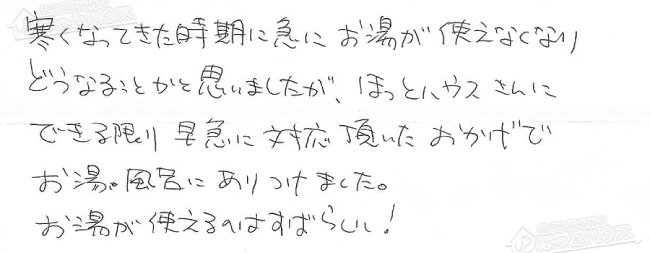 寒くなってきた時期に急に お湯が 使えなくなり
どうなることかと思いましたが、ほっとハウス さんに
できる限り 早急に 対応 頂いた おかげで
お湯。風呂に ありつけました。
お湯が 使えるのはすばらしい!